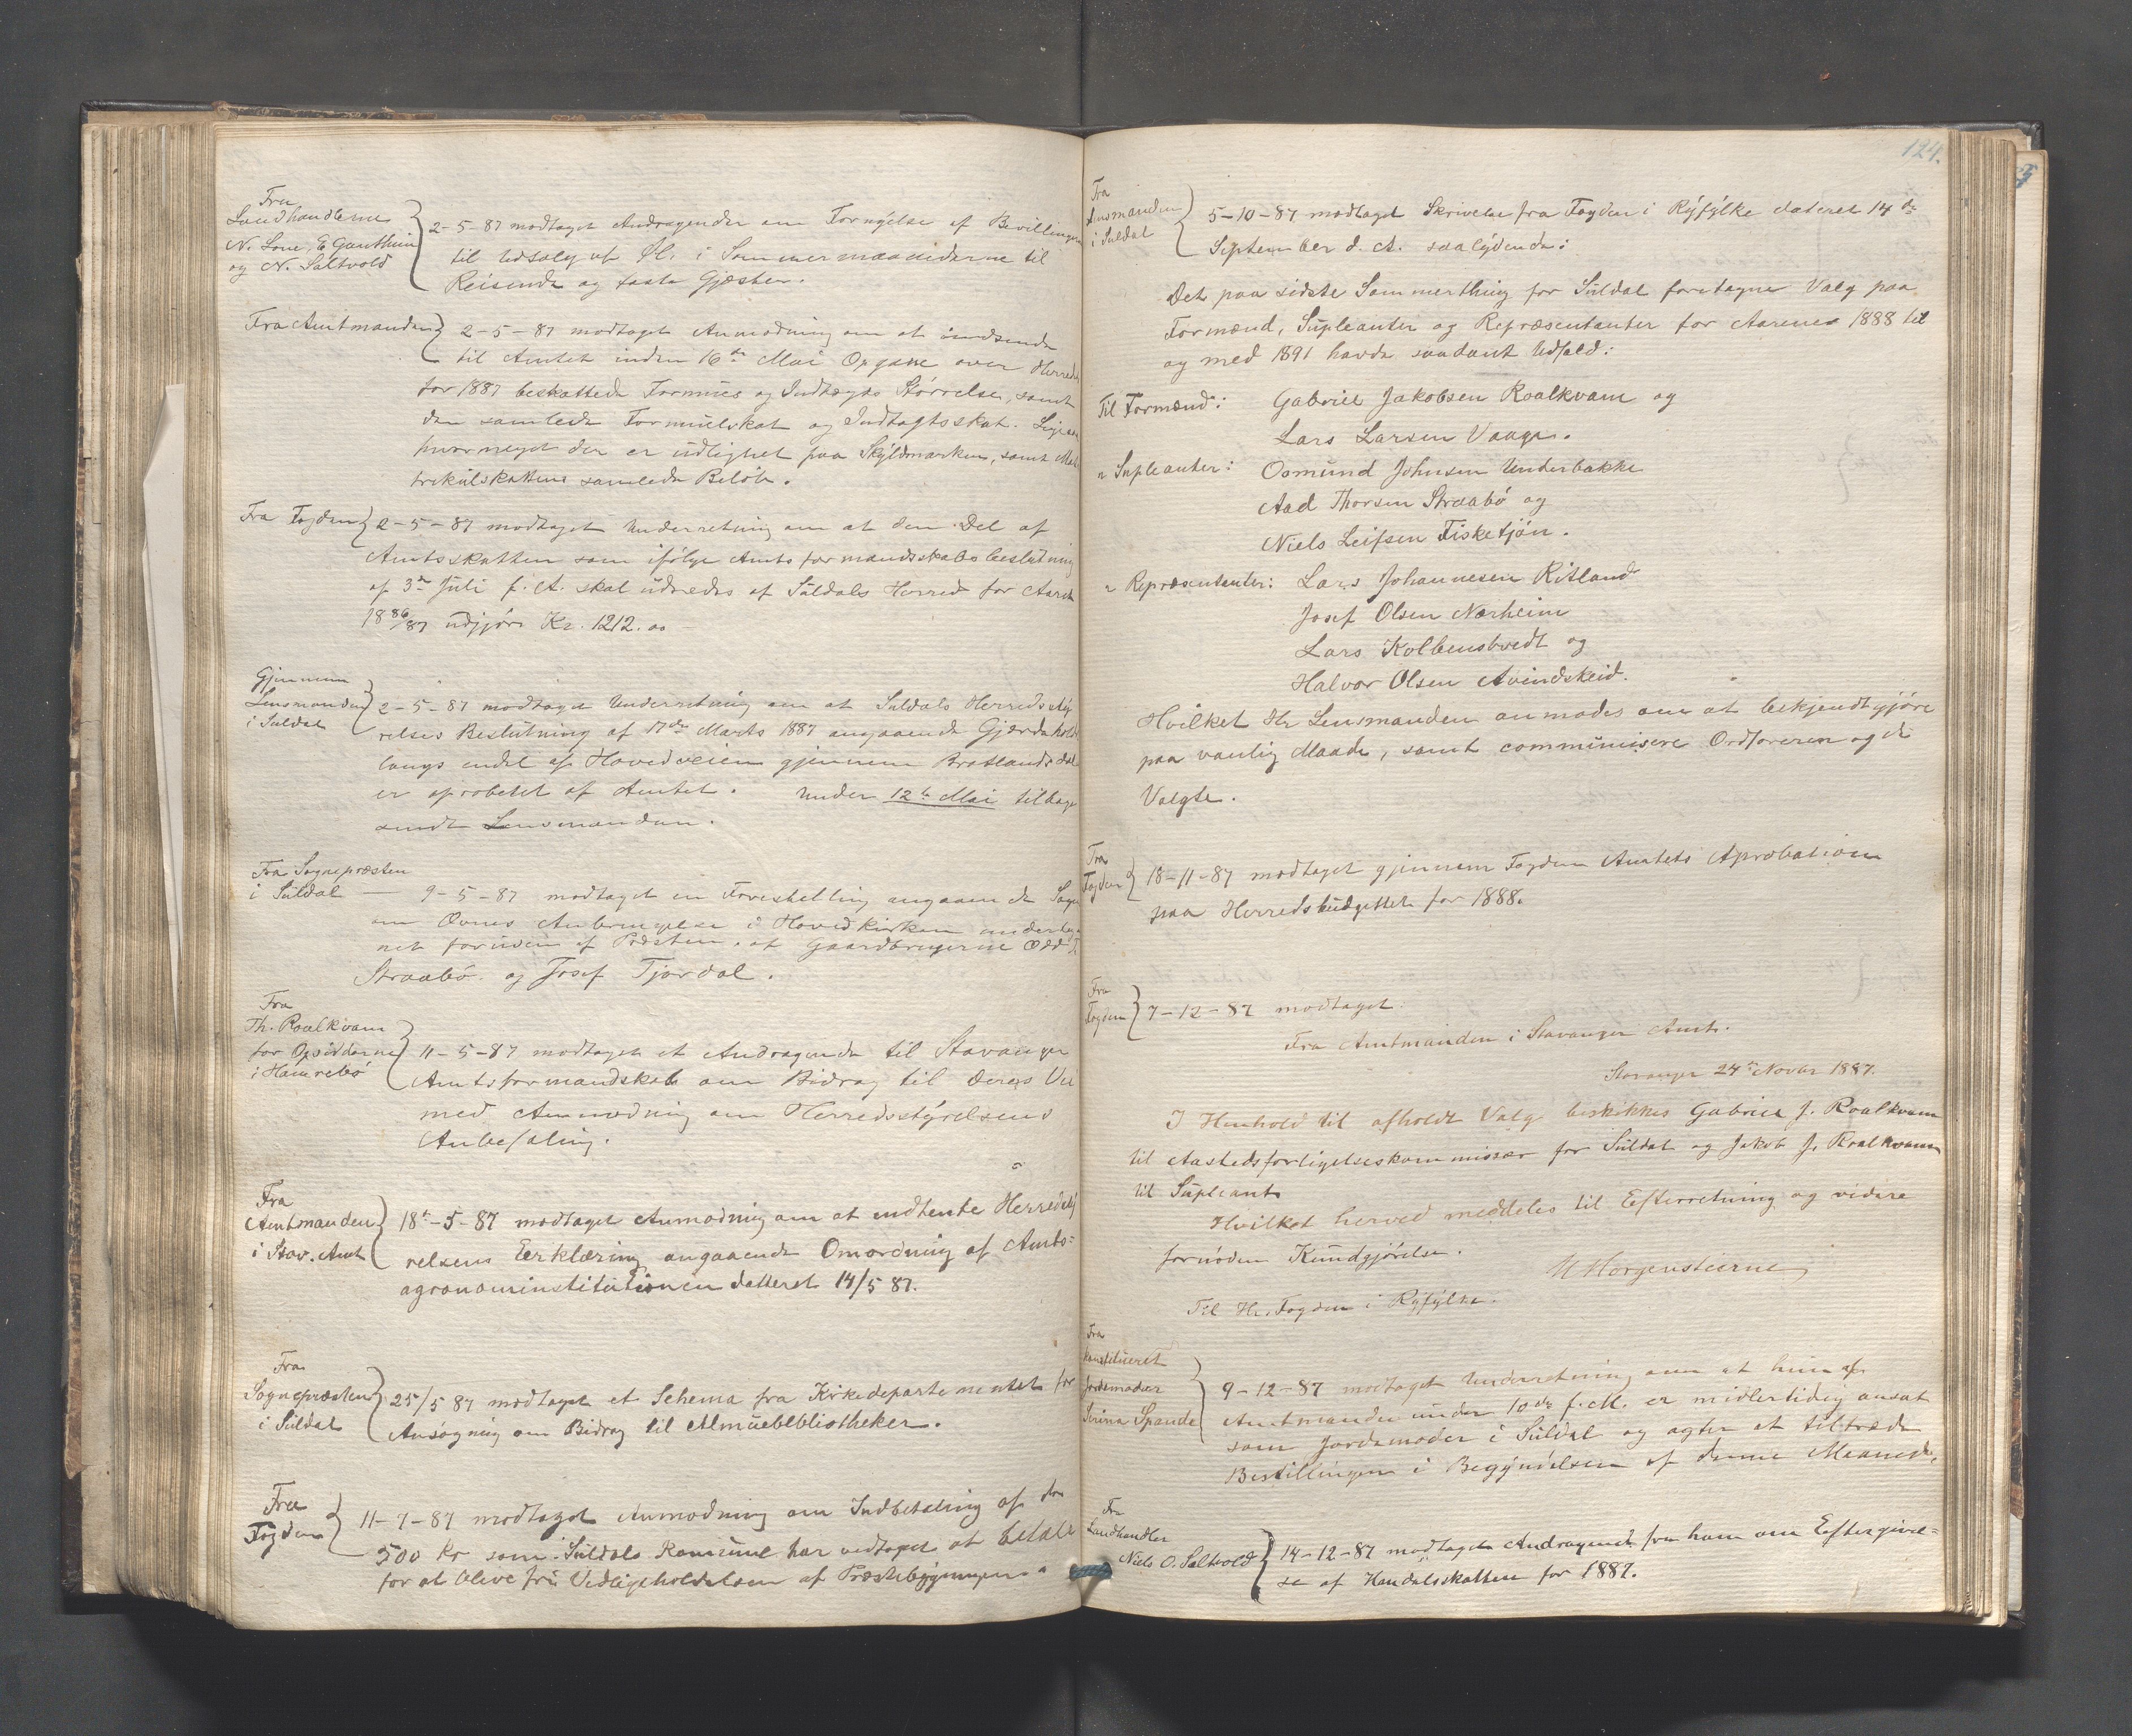 Fra
Landhandlerne
N. Lone, E. Ganthun
og N. Saltvold
2-5-87 modtaget Andragender om Fornyelse af Bevillingen
til Udsalg af Øl i Sommermaanederne til
Reisende og faste Gjæster.
Fra Amtmanden
2-5-87 modtaget Anmodning om at indsende
til Amtet inden 16de Mai Opgave over Herredets
for 1887 beskattede Formues og Indtægts Størrelse, samt
den samlede Formueskat og Indtægtsskat.
hvormeget der er udlignet paa Skyldmarken, samt Ma-
trikulskattens samlede Beløb.
Fra Fogden
2-5-87 modtaget Underretning om at den Del af
Amtsskatten som ifølge Amtsformandsskabsbeslutning
af 3de Juli f. A. skal udredes af Suldals Herred for Aaret
1886/87 udgjør Kr. 1212.00
Gjennem
Lensmanden
i Suldal
2-5-87 modtaget Underretning om at Suldals Herredssty-
relses Beslutning af 17de Marts 1887 angaaende Gjærdehold
langs endel af Hovedveien gjennem Bratlandsdal
er aprobetet af Amtet. Under 12te Mai tilbage-
sendt Lensmanden.
Fra Sognepræsten
i Suldal
9-5-87 modtaget en Forestilling angaaende
om Ovnes Anbringelse i Hovedkirken underteg-
net foruden af Præsten, af Gaardbrugerne Odd T.
Straabø og Josef Tjordal.
Fra
Th. Roalkvam
for Opsidderne
i Hamrebø
11-5-87 modtaget et Andragende til Stavanger
Amtsformandskab om Bidrag til deres Vei
med Anmodning om Herredsstyrelsens
Anbefaling.
Fra
Amtmanden
i Stav. Amt
18de-5-87 modtaget Anmodning om at indhente Herredssty
relsens Eerklæring angaaende Omordning af Amts-
agronominstitutionen datteret 14/5 87.
Fra
Sognepræsten
i Suldal
25/5 87 modtaget et Schema fra Kirkedepartementet for
Ansøgning om Bidrag til Almueblbliotheker.
Fra
Fogden
11-7-87 modtaget Anmodning om Indbetaling af de
500 Kr som Suldals Kommune har vedtaget at betale
for at blive fri Vedligeholdelsen af Præstebygningen.
124.
Fra
Lensmanden
i Suldal
5-10-87 modtaget Skrivelse fra Fogden i Ryfylke dateret 14de
September d. A. saalydende:
Det paa sidste Sommerthing for Suldal foretagne Valg paa
Formænd, Supleanter og Repræsentanter for Aarene 1888 til
og med 1891 havde saadant Udfald:
Til Formænd: Gabriel Jakobsen Roalkvam og
Lars Larsen Vaage.
" Supleanter: Osmund Johnsen Underbakke
Aad Thorsen Straabø og
Niels Leifsen Fisketjøn.
" Repræsentanter: Lars Johannesen Ritland
Josef Olsen Nærheim
Lars Kolbenstvedt og
Halvor Olsen Avindskeid.
Hvilket Hr Lensmanden anmodes om at bekjendtgjøre
paa vanlig Maade, samt communisere Ordføreren og de
Valgte.
Fra
Fogden
18-11-87 modtaget gjennem Fogden Amtets Aprobation
paa Herredsbudgettet for 1888.
Fra
Fogden
7-12-87 modtaget:
Fra Amtmanden i Stavanger Amt.
Stavanger 24de Novbr 1887.
I Henhold til afholdt Valg beskikkes Gabriel J. Roalkvam
til Aastedsforligelseskommissær for Suldal og Jakob J. Roalkvam
til Supleant
Hvilket herved meddeles til Efterretning og videre
fornøden Kundgjørelse.
Morgenstierne
Til Hr. Fogden i Ryfylke.
Fra
konstitueret
Jordemoder
Serina Spande
9-12-87 modtaget Underretning om at hun af
Amtmanden under 10de f. M. er midlertidig ansat
som Jordemoder i Suldal og agter at tiltræde
Bestillingen i Begyndelsen af denne Maaned.
Fra
Landhandler
Niels O. Saltvold
14-12-87 modtaget Andragende fra ham om Eftergivel-
se af Handelsskatten for 1887.